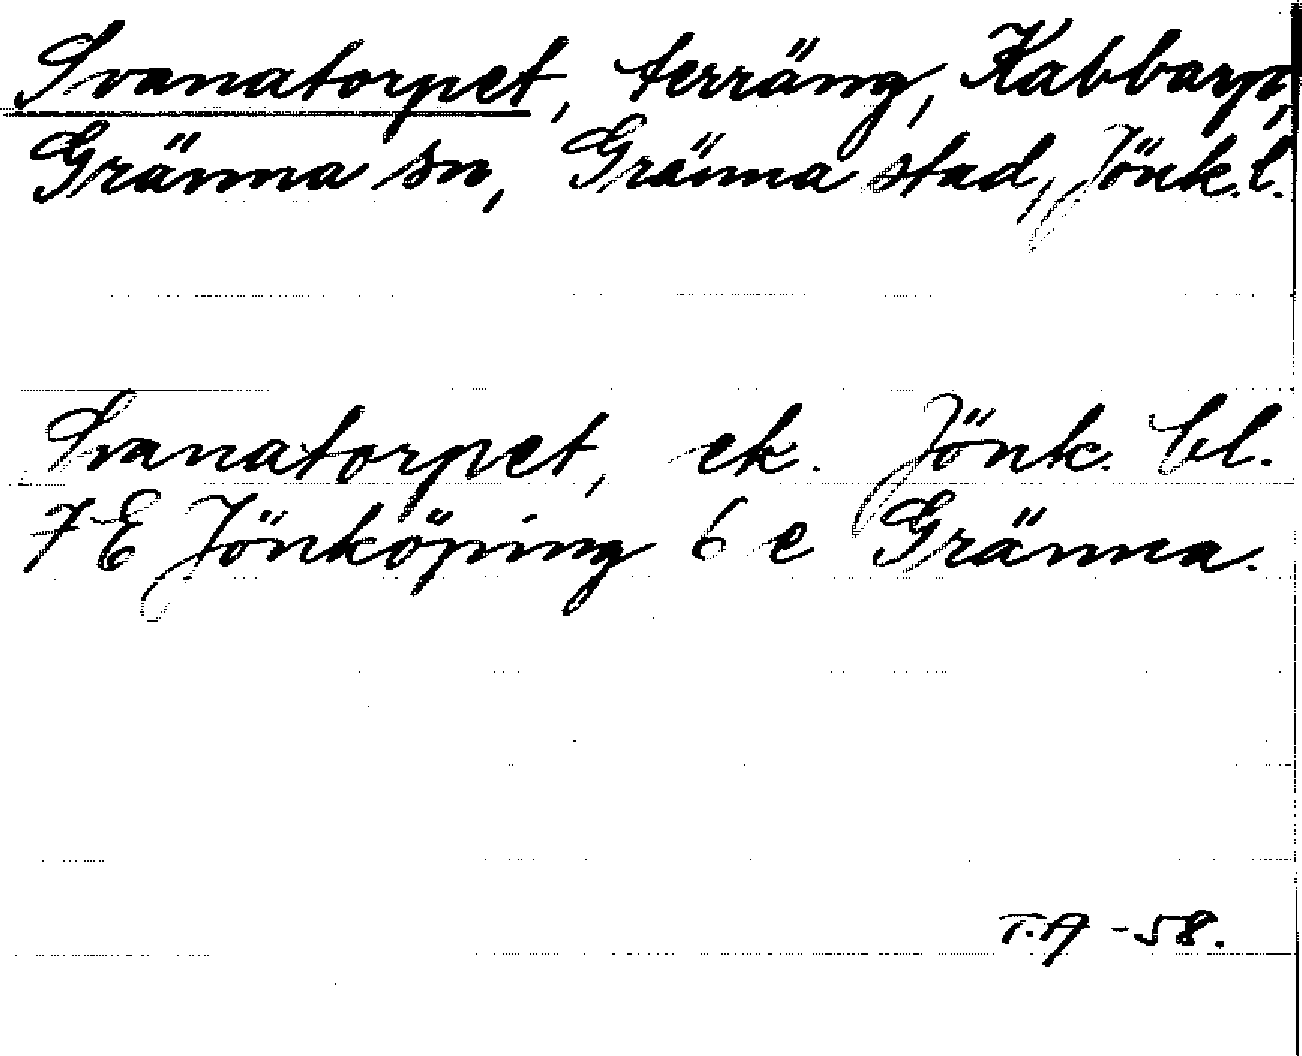 Svanatorpet, terräng, Kabbarp,
Gränna sn, Gränna stad, Jönk.l.
Svanatorpet, ek. Jönk. bl.
7 E Jönköping 6 e Gränna.
T.A -58.